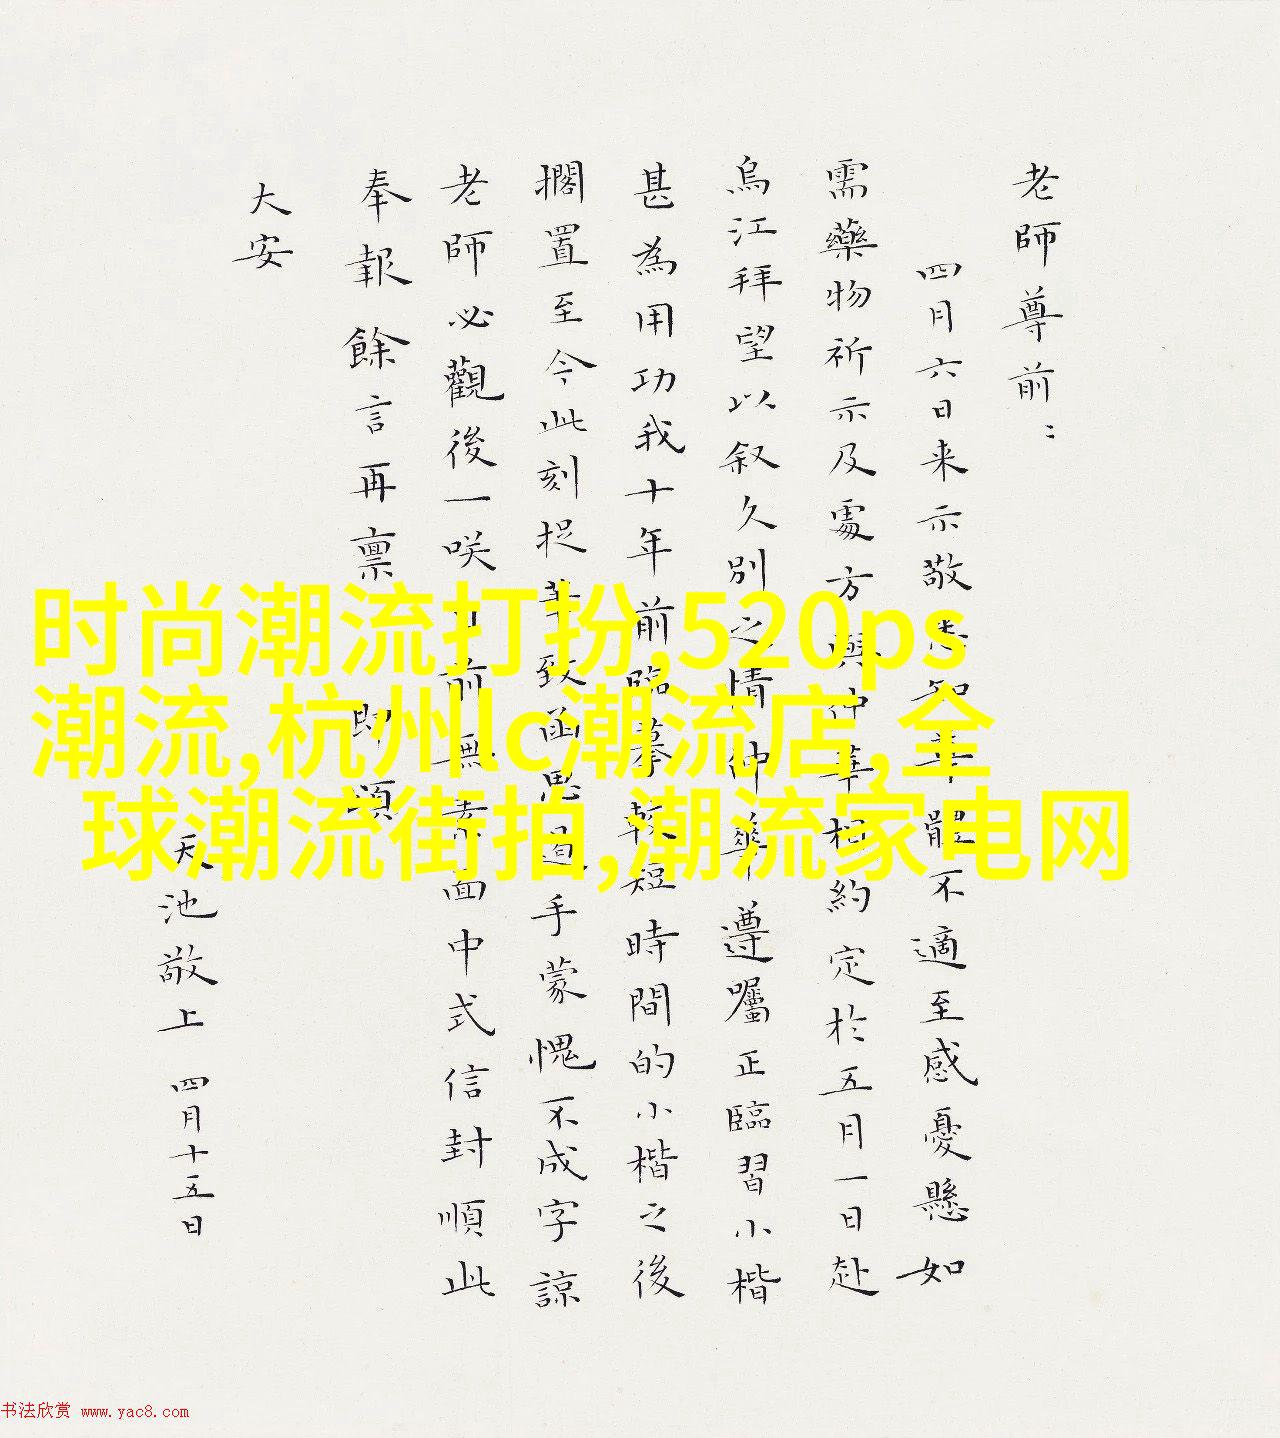 老師尊前：
四月六日来示敬悉知華年體不適至感憂懸如
需藥物祈示及處方與仲華相約定於五月一日赴
烏江拜望以叙久別之情仲華遵囑正臨習小楷
甚為用功我十年前臨摹較短時間的小楷之後
擱置至今此刻捉筆致函思過手蒙愧不成字諒
老師必觀後一咲目前無素面中式信封順此
奉報餘言再禀即頌
大安
天池敬上 四月十五日
时尚潮流打扮,520ps
潮流,杭州lc潮流店,全
球潮流街拍,潮流家电网
书法欣赏 www.yac8.com